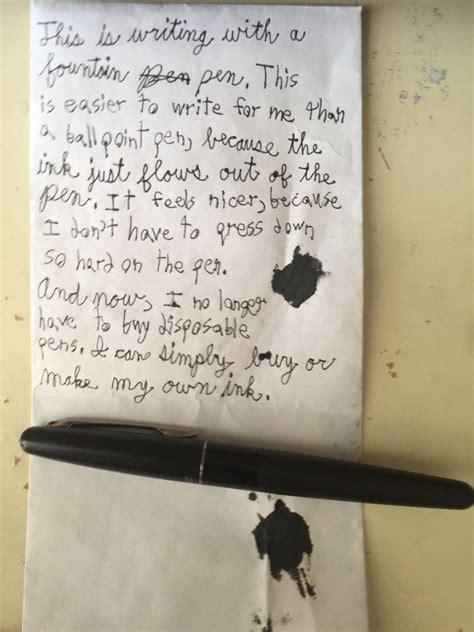 This is writing with a
fountain pen pen. This
is easier to write for me than
a ball point pen, because the
ink just flows out of the
pen. It feels nicer, because
I don't have to press down
so hard on the pen.
And now, I no longer
have to buy disposable
pens. I can simply buy or
make my own ink.